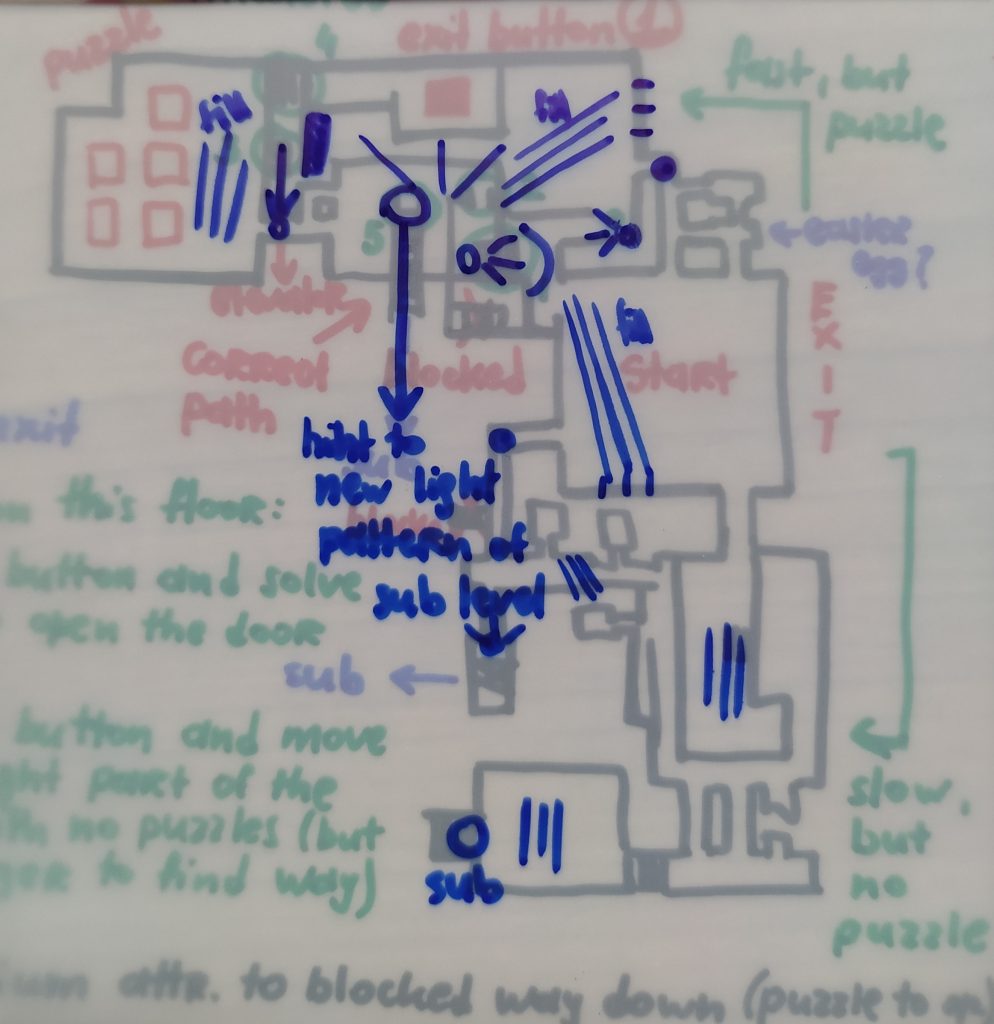 puzzle
4
exit button (1)
fast, but
puzzle
fill
fill
easter
egg?
5
E
X
I
T
fill
correct
path
blocked
Start
exit
hint to
new light
pattern of
sub level
this floor:
button and solve
open the door
sub
button and move
part of the
no puzzles (but
to find way)
slow,
but
no
puzzle
sub
attr. to blocked way down (puzzle to